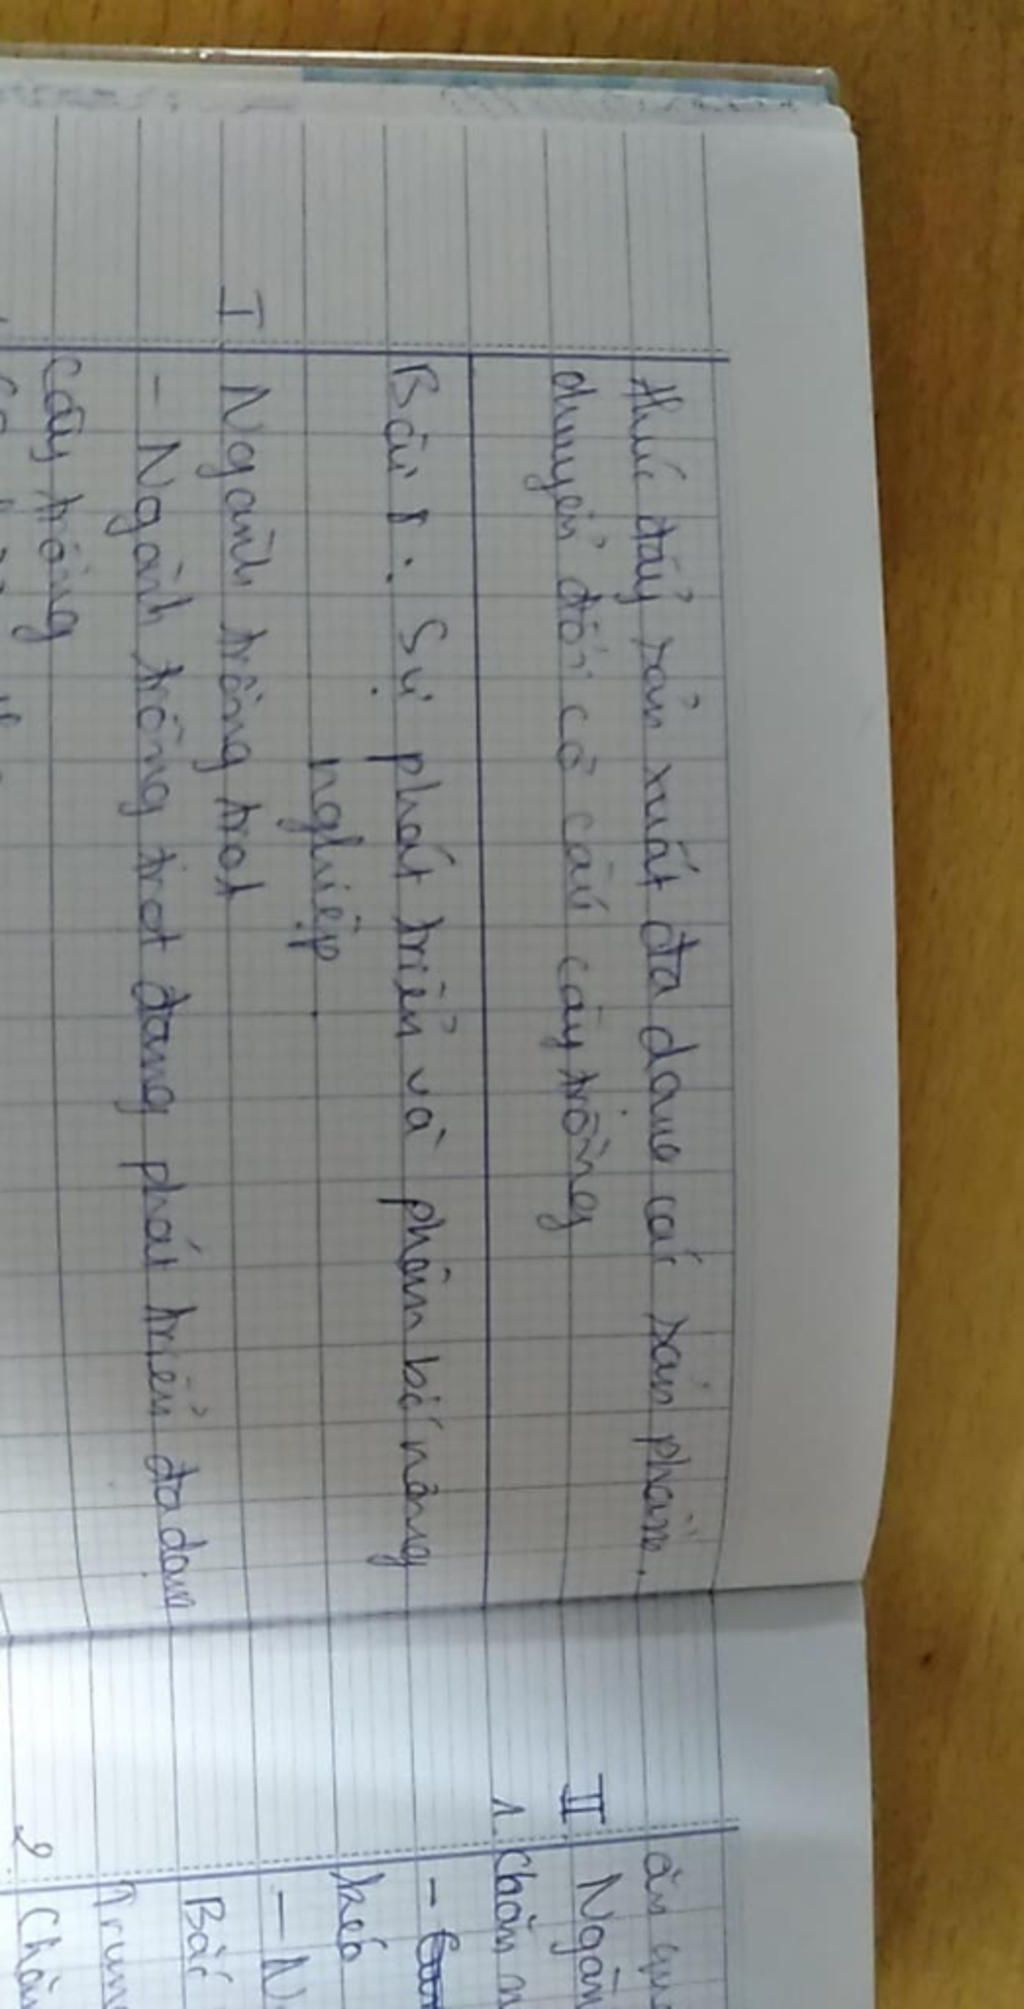 thúc đẩy sản xuất đa dang các sản phẩm.
chuyển đổi cơ cấu cây trồng
Bài 8: Sự phát triển và phân bố nông
nghiệp
I Ngành trồng trọt
- Ngành trồng trọt đang phát triển đa dạng
cây trồng
II Ngàn
1. Chăn n
-
kéo
- N
Bắc
Trun
2. Chăn